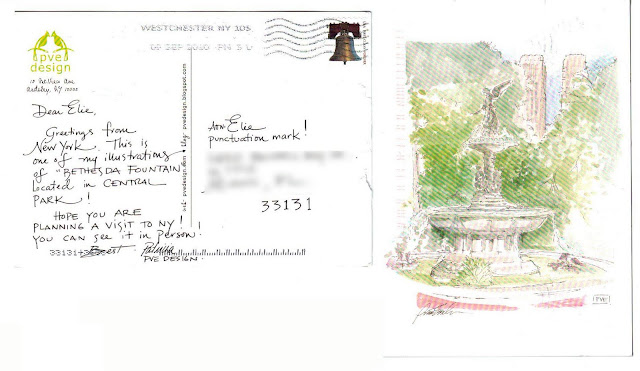 pve
design
Ardsley, NY
WESTCHESTER NY 105
SEP 2010 PM
Dear Elie,
Greetings from
New York. This is
one of my illustrations
of "BETHESDA FOUNTAIN"
located in CENTRAL
PARK!
HOPE YOU ARE
PLANNING A VISIT TO NY!
YOU CAN see it in Person!
33131
Best
Patricia
PVE DESIGN.
blog: pvedesign.blogspot.com
Attn Elie
punctuation mark!
33131
PVE